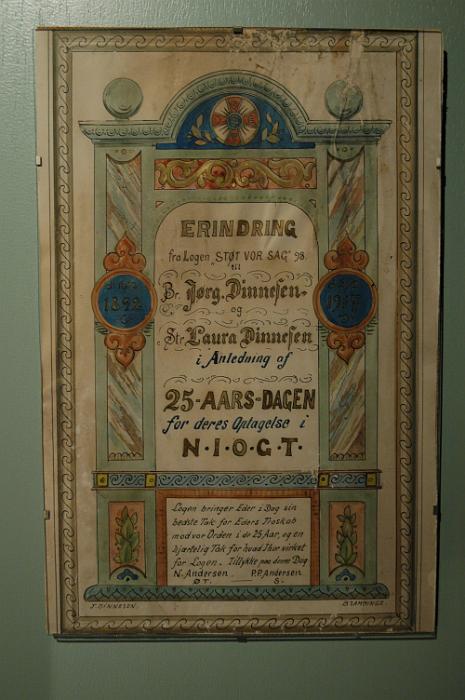 ERINDRING
fra Logen „STØT VOR SAG" 98.
til
Br. Jørg. Dinnesen.
og
Str. Laura Dinnesen
i Anledning af
25-AARS-DAGEN
for deres Optagelse i
N·I·O·G·T·
1892
1917
Logen bringer Eder i Dag sin
bedste Tak for Eders Troskab
mod vor Orden i de 25 Aar, og en
hjærtelig Tak for hvad I har virket
for Logen. Tillykke paa denne Dag
N. Andersen P.P. Andersen
ØT. S.
J. DINNESEN.